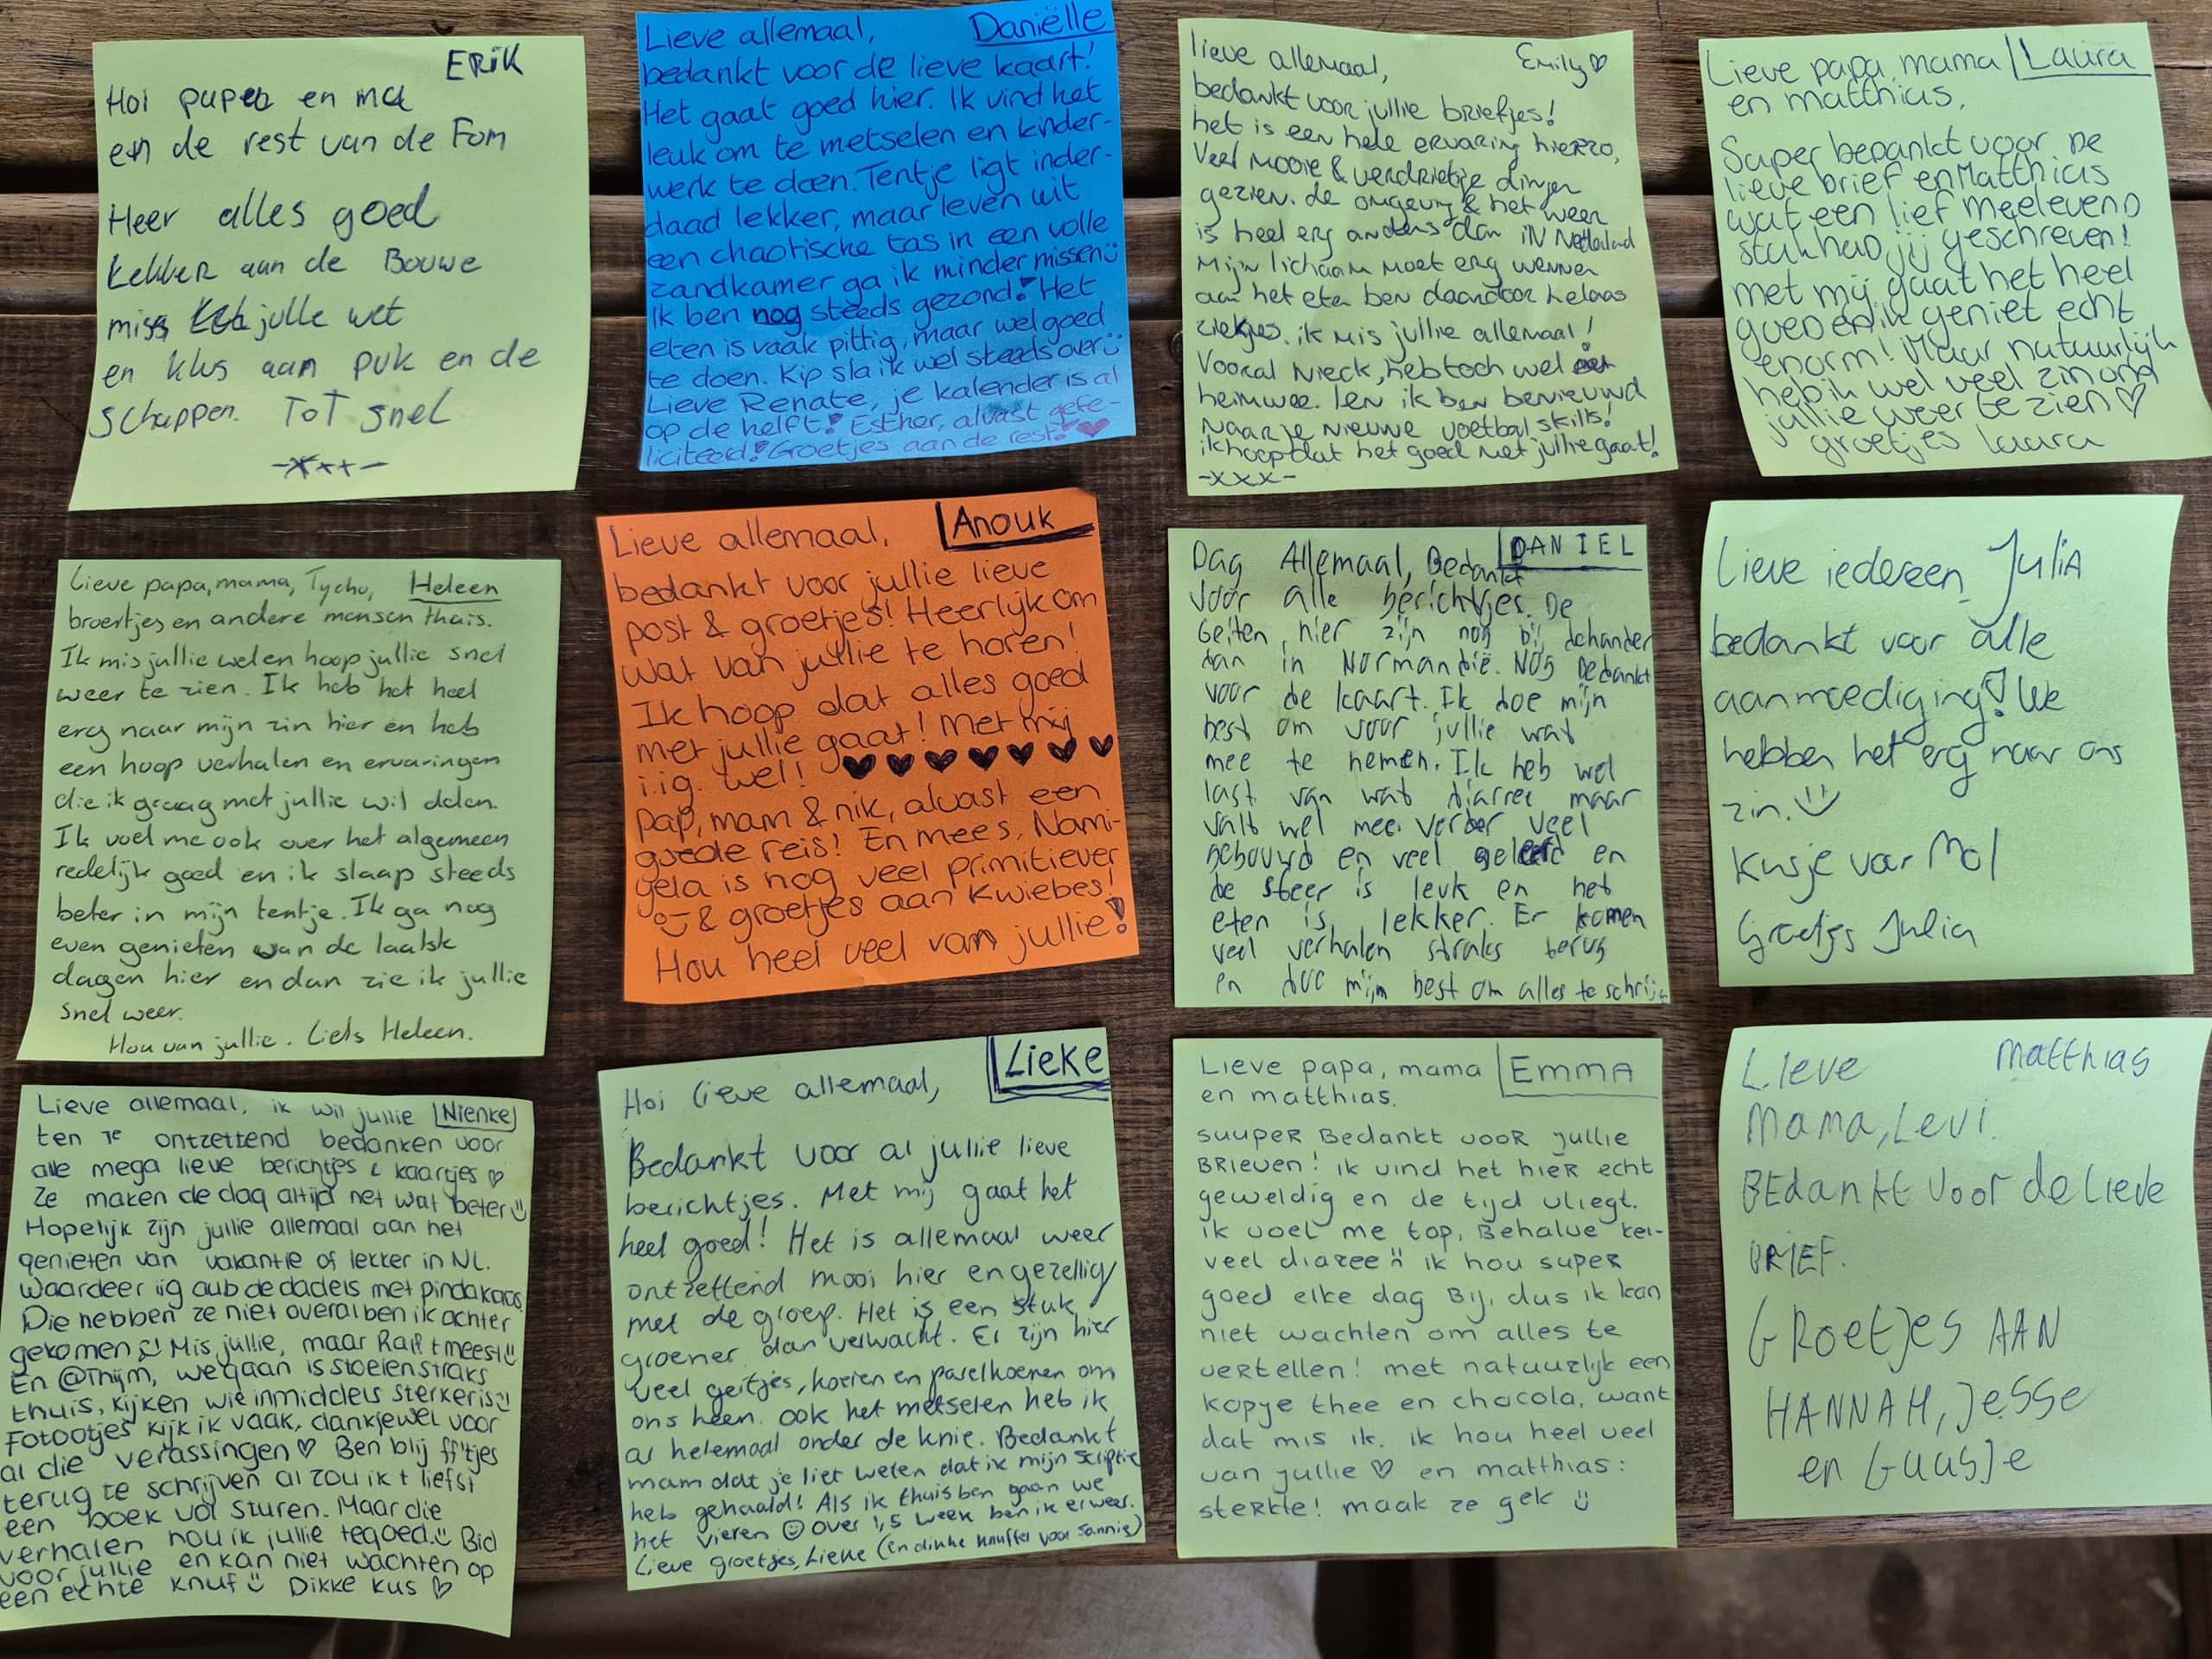 ERIK
Hoi papeb en ma
en de rest van de Fom
Heer alles goed
Lekker aan de Bouwe
miss julle wet
en klus aan puk en de
schappen. Tot snel
-xxx-
Lieve allemaal, Daniëlle
bedankt voor de lieve kaart!
Het gaat goed hier. Ik vind het
leuk om te metselen en kinder-
werk te doen. Tentje ligt inder-
daad lekker, maar leven uit
een chaotische tas in een volle
zandkamer ga ik minder missen
Ik ben nog steeds gezond! Het
eten is vaak pittig, maar wel goed
te doen. Kip sla ik wel steeds over
Lieve Renate, je kalender is al
op de helft! Esther, alvast gefe-
liciteerd! Groetjes aan de rest! ♥
lieve allemaal, Emily ♡
bedankt voor jullie briefjes!
het is een hele ervaring hierzo,
veel mooie & verdrietige dingen
gezien. de omgeving & het weer
is heel erg anders dan in Nederland
Mijn lichaam moet erg wennen
aan het eten ben daardoor helaas
ziekjes. ik mis jullie allemaal!
Vooral Nieck, heb toch wel
heimwee. Ien ik ben benieuwd
naar je nieuwe voetbal skills!
ik hoop dat het goed met jullie gaat!
-xxx-
Lieve papa, mama Laura
en matthias,
Super bedankt voor de
lieve brief en Matthias
wat een lief meelevend
stuk had jij geschreven!
met mij gaat het heel
goed en ik geniet echt
enorm! Maar natuurlijk
heb ik wel veel zin om
jullie weer te zien ♡
groetjes Laura
Lieve papa, mama, Tycho, Heleen
broertjes en andere mensen thuis.
Ik mis jullie wel en hoop jullie snel
weer te zien. Ik heb het heel
erg naar mijn zin hier en heb
een hoop verhalen en ervaringen
die ik graag met jullie wil delen.
Ik voel me ook over het algemeen
redelijk goed en ik slaap steeds
beter in mijn tentje. Ik ga nog
even genieten van de laatste
dagen hier en dan zie ik jullie
snel weer.
Hou van jullie. Liefs Heleen.
Lieve allemaal, Anouk
bedankt voor jullie lieve
post & groetjes! Heerlijk om
wat van jullie te horen!
Ik hoop dat alles goed
met jullie gaat! Met mij
i.ig. wel! ♥ ♥ ♥ ♥ ♥ ♥ ♥
Pap, mam & nik, alvast een
goede reis! En mees, Nami-
gela is nog veel primitiever
& groetjes aan Kwiebes!
Hou heel veel van jullie!
DANIEL
Dag Allemaal, Bedankt
voor alle berichtjes. De
Geiten hier zijn nog bij dehander
dan in Normandië. Nog bedankt
voor de kaart. Ik doe mijn
best om voor jullie wat
mee te nemen. Ik heb wel
last van wat diarree maar
valt wel mee. Verder veel
gebouwd en veel geleerd en
de sfeer is leuk en het
eten is lekker. Er komen
veel verhalen straks terug
en doe mijn best om alles te schrij
Lieve iedereen, Julia
bedankt voor alle
aanmoediging! We
hebben het erg naar ons
zin.
Kusje voor Mol
Groetjes Julia
Lieve allemaal, ik wil jullie Nienke
ten 1e ontzettend bedanken voor
alle mega lieve berichtjes & kaartjes ♡
Ze maken de dag altijd net wat beter
Hopelijk zijn jullie allemaal aan het
genieten van vakantie of lekker in NL.
waardeer iig aub de dadels met pindakaas.
Die hebben ze niet overal ben ik achter
gekomen Mis jullie, maar Ralf t meest
En @Thijm, we gaan is stoeien straks
thuis, kijken wie inmiddels sterker is
Fotootjes kijk ik vaak, dankjewel voor
al die verassingen ♡ Ben blij ff'tjes
terug te schrijven al zou ik t liefst
een boek vol sturen. Maar die
verhalen hou ik jullie tegoed. Bid
voor jullie en kan niet wachten op
een echte knuf Dikke kus ♡
Lieke
Hoi lieve allemaal,
Bedankt voor al jullie lieve
berichtjes. Met mij gaat het
heel goed! Het is allemaal weer
ontzettend mooi hier en gezellig
met de groep. Het is een stuk
groener dan verwacht. Er zijn hier
veel geitjes, koeien en parelhoenen om
ons heen. Ook het metselen heb ik
al helemaal onder de knie. Bedankt
mam dat je liet weten dat ik mijn scriptie
heb gehaald! Als ik thuis ben gaan we
het vieren ☺ Over 1,5 week ben ik er weer.
Lieve groetjes, Lieke (en dikke knuffel voor Sannie)
Lieve papa, mama Emma
en matthias.
suuper Bedankt voor jullie
Brieven! ik vind het hier echt
geweldig en de tijd vliegt.
ik voel me top, Behalve kei-
veel diaree ik hou super
goed elke dag Bij, dus ik kan
niet wachten om alles te
vertellen! met natuurlijk een
kopje thee en chocola, want
dat mis ik. ik hou heel veel
van jullie ♡ en matthias:
sterkte! maak ze gek
Lieve Matthias
Mama, Levi.
BEdankt voor de Lieve
BRIEF.
GRoetjes AAN
HANNAH, Jesse
en Guusje